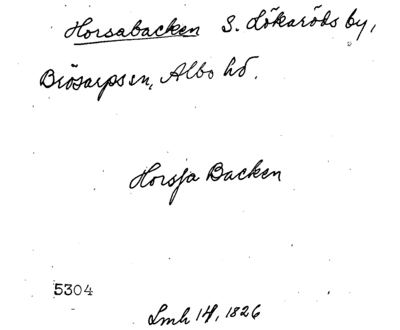 Horsabacken S. Lökaröds by,
Brösarps sn, Albo hd.
Horsja Backen
5304
Lmh 14, 1826